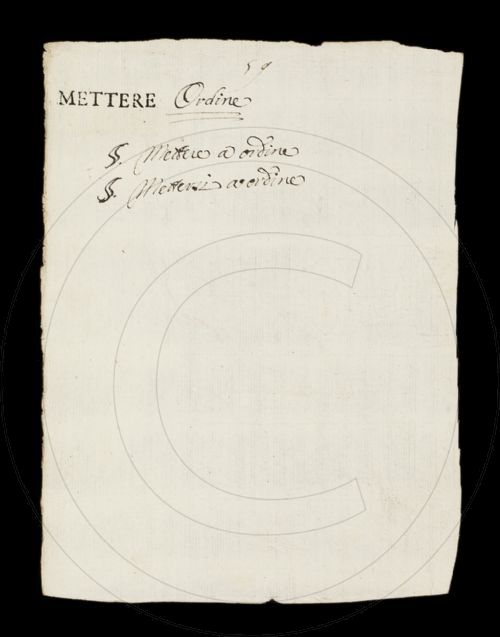 59
METTERE Ordine
§. Mettere a ordine
§. Mettersi a ordine